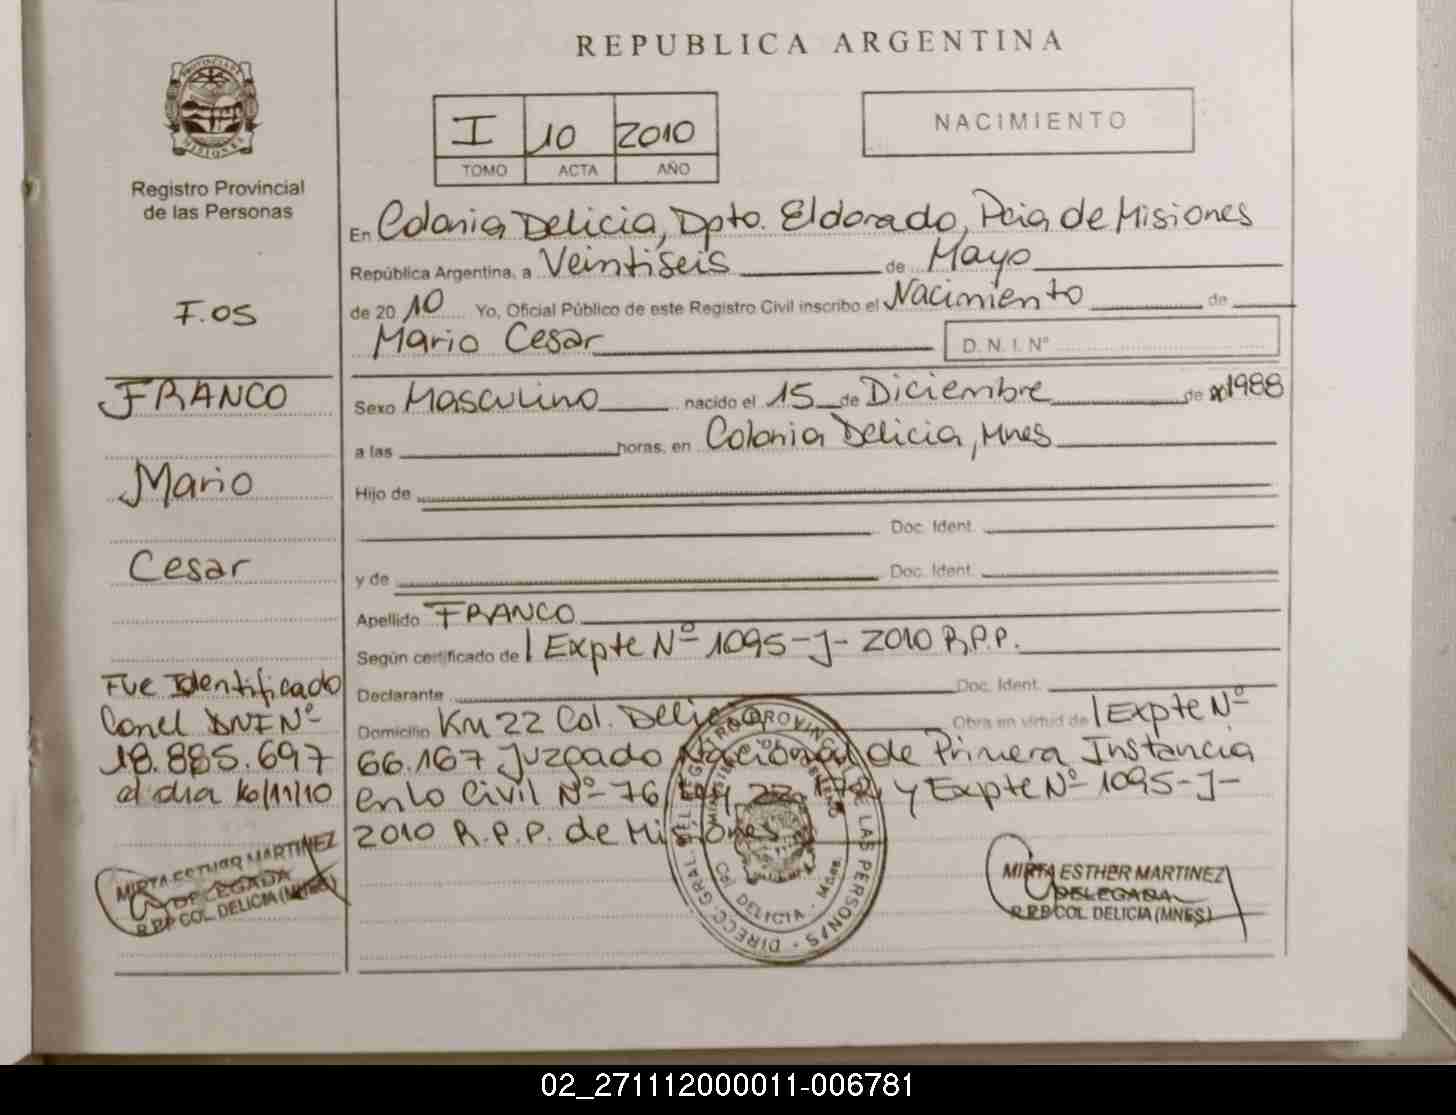 REPUBLICA ARGENTINA
PROVINCIA DE
MISIONES
Registro Provincial
de las Personas
I 10 2010
TOMO ACTA AÑO
NACIMIENTO
F.05
FRANCO
Mario
Cesar
Fue Identificado
Con el DNI Nº
18.885.697
el dia 16/11/10
MIRTA ESTHER MARTINEZ
DELEGADA
R.P.P COL. DELICIA (MNES)
En Colonia Delicia, Dpto. Eldorado, Pcia de Misiones
República Argentina, a Veintiseis de Mayo
de 2010 Yo, Oficial Público de este Registro Civil inscribo el Nacimiento de
Mario Cesar D. N. I. Nº
Sexo Masculino nacido el 15 de Diciembre de 1988
a las horas, en Colonia Delicia, Mnes
Hijo de
Doc. Ident.
y de Doc. Ident.
Apellido FRANCO
Según certificado de Expte Nº 1095-J-2010 R.P.P.
Declarante Doc. Ident.
Domicilio Km 22 Col. Delicia Obra en virtud de Expte Nº
66.167 Juzgado Nacional de Primera Instancia
en lo Civil Nº 76 Ley y Expte Nº 1095-J-
2010 R.P.P. de Misiones
DIRECC. GRAL. DEL REGISTRO PROVINCIAL DE LAS PERSONAS
DELICIA - Mnes
MIRTA ESTHER MARTINEZ
DELEGADA
R.P.P COL. DELICIA (MNES)
02_271112000011-006781